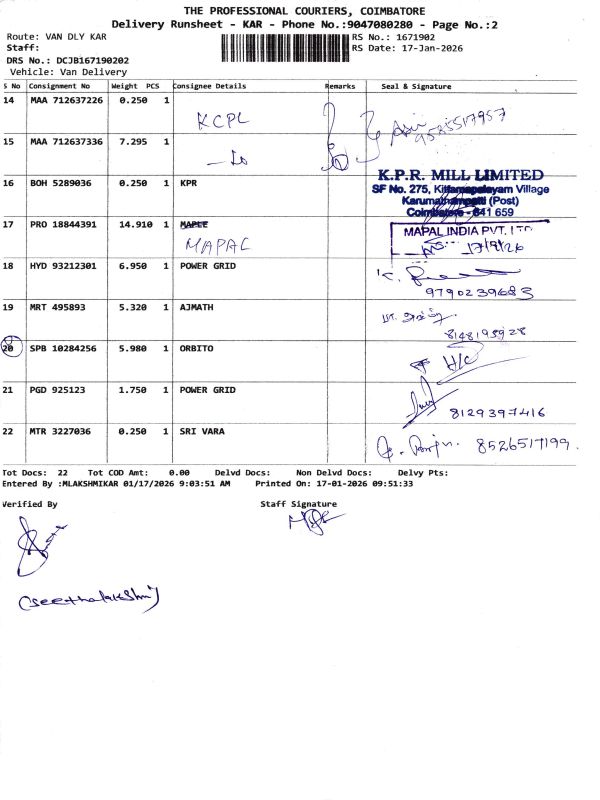 THE PROFESSIONAL COURIERS, COIMBATORE
Delivery Runsheet - KAR - Phone No.:9047080280 - Page No.:2
Route: VAN DLY KAR
RS No.: 1671902
Staff:
RS Date: 17-Jan-2026
DRS No.: DCJB167190202
Vehicle: Van Delivery
S No Consignment No Weight PCS Consignee Details Remarks Seal & Signature
14 MAA 712637226 0.250 1 KCPL
15 MAA 712637336 7.295 1
16 BOH 5289036 0.250 1 KPR
K.P.R. MILL LIMITED
SF No. 275, Kittampalayam Village
Karumathampatti (Post)
Coimbatore - 641 659
17 PRO 18844391 14.910 1 MAPLE
MAPAL
MAPAL INDIA PVT. LTD.
18 HYD 93212301 6.950 1 POWER GRID
9790239683
19 MRT 495893 5.320 1 AJMATH
20 SPB 10284256 5.980 1 ORBITO
H/C
21 PGD 925123 1.750 1 POWER GRID
8129397416
22 MTR 3227036 0.250 1 SRI VARA
8526517199
Tot Docs: 22 Tot COD Amt: 0.00 Delvd Docs: Non Delvd Docs: Delvy Pts:
Entered By :MLAKSHMIKAR 01/17/2026 9:03:51 AM Printed On: 17-01-2026 09:51:33
Verified By Staff Signature
(Seethalakshmi)